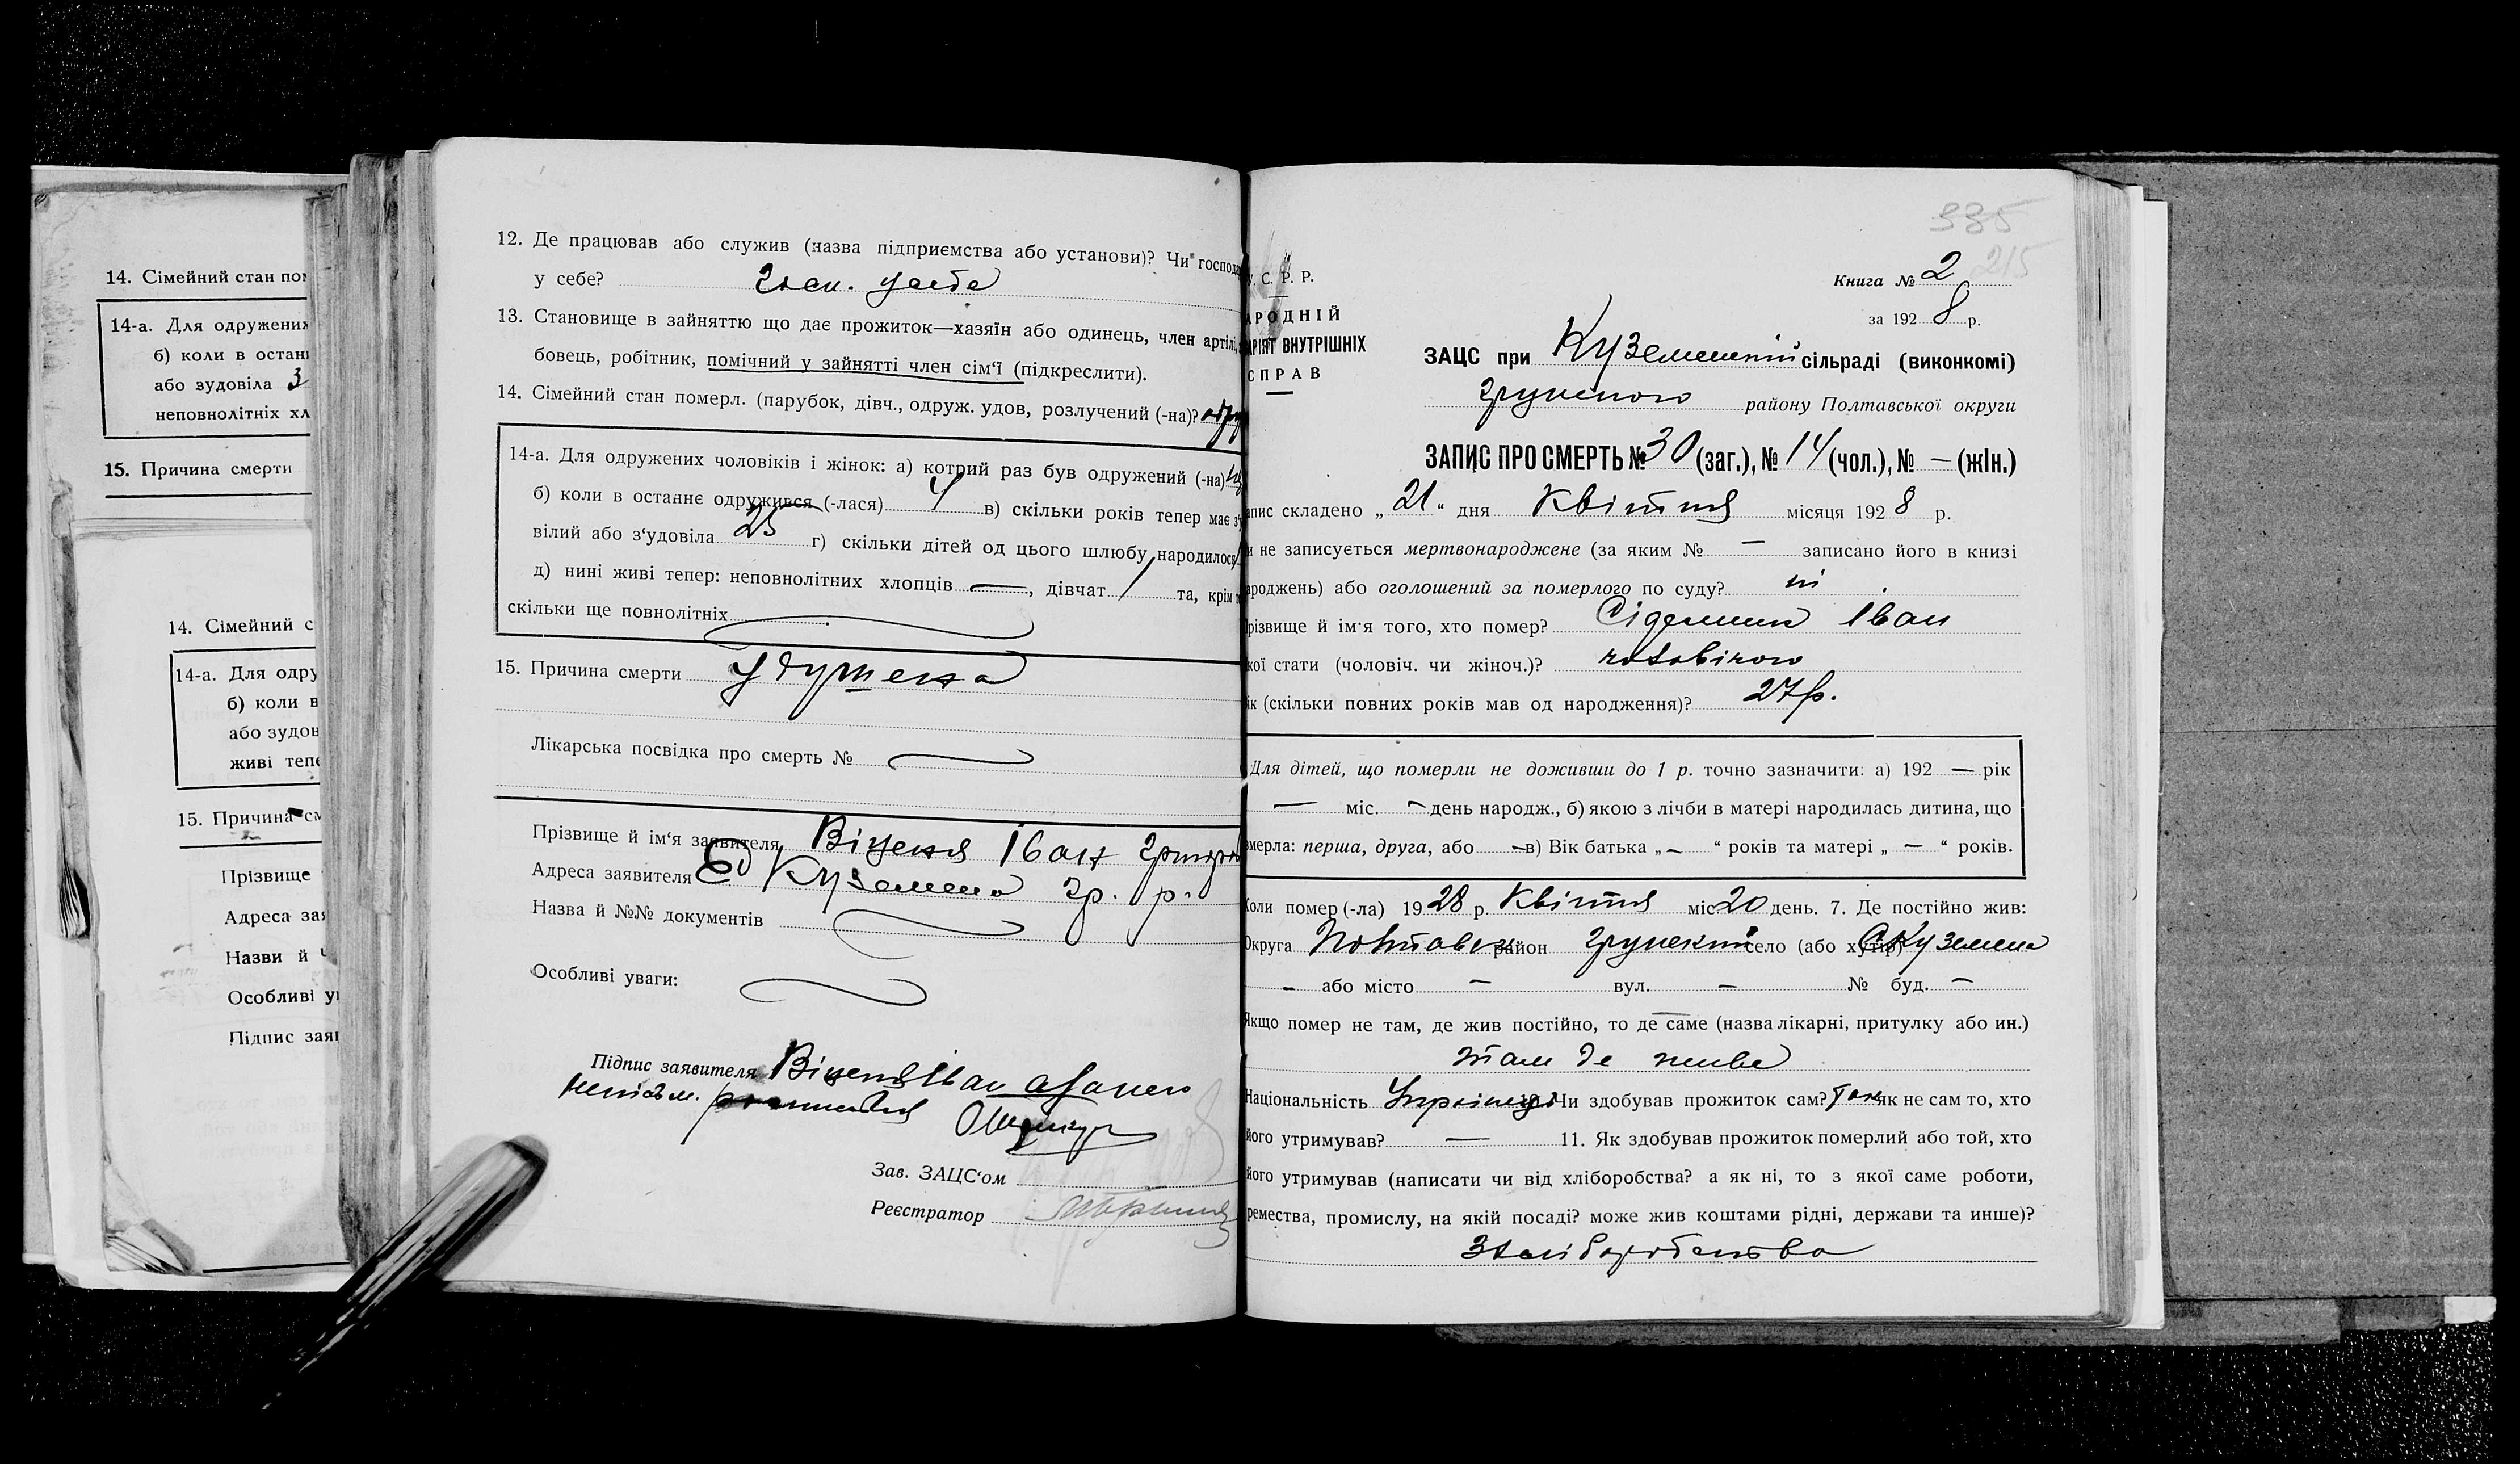 14. Сімейний стан пом
14-а. Для одружених
б) коли в останн
або зудовіла 3
неповнолітніх хл
15. Причина смерти
14. Сімейний с
14-а. Для одру
б) коли в
або зудов
живі тепе
15. Причина см
Прізвище
Адреса зая
Назви й
Особливі у
Підпис зая
12. Де працював або служив (назва підприємства або установи)? Чи господа
у себе? госп. у себе
13. Становище в зайняттю що дає прожиток—хазяїн або одинець, член артілі,
бовець, робітник, помічний у зайнятті член сім‘ї (підкреслити).
14. Сімейний стан померл. (парубок, дівч., одруж. удов, розлучений (-на)? одру
14-а. Для одружених чоловіків і жінок: а) котрий раз був одружений (-на)
б) коли в останнє одружився (-лася) 4 в) скільки років тепер має з‘
вілий або з‘удовіла 25 г) скільки дітей од цього шлюбу народилося
д) нині живі тепер: неповнолітних хлопців —, дівчат 1 та, крім т
скільки ще повнолітніх
15. Причина смерти
Лікарська посвідка про смерть №
Прізвище й ім‘я заявителя Віценя Іван
Адреса заявителя Куземена гр. р.
Назва й №№ документів
Особливі уваги:
Підпис заявителя Віценя Іван
неписьм.
Зав. ЗАЦС‘ом
Реєстратор
335
215
У. С. Р. Р.
АРОДНІЙ
АРІЯТ ВНУТРІШНІХ
СПРАВ
Книга № 2
за 192 8 р.
ЗАЦС при Куземенській сільраді (виконкомі)
Грунського району Полтавської округи
ЗАПИС ПРО СМЕРТЬ № 30 (заг.), № 14 (чол.), № — (жін.)
апис складено „ 21 “ дня Квітня місяця 192 8 р.
и не записується мертвонароджене (за яким № — записано його в книзі
ароджень) або оголошений за померлого по суду? ні
різвище й ім‘я того, хто помер? Іван
кої стати (чоловіч. чи жіноч.)? чоловічого
ік (скільки повних років мав од народження)? 27 р.
Для дітей, що померли не доживши до 1 р. точно зазначити: а) 192 — рік
— міс. — день народж., б) якою з лічби в матері народилась дитина, що
мерла: перша, друга, або — в) Вік батька „ — “ років та матері „ — “ років.
Коли помер (-ла) 19 28 р. Квітня міс 20 день. 7. Де постійно жив:
Округа Полтавськ район Грунський село (або хутір) с Куземена
— або місто — вул. — № буд. —
Якщо помер не там, де жив постійно, то де саме (назва лікарні, притулку або ин.)
там де живе
Національність Українець Чи здобував прожиток сам? Так як не сам то, хто
його утримував? — 11. Як здобував прожиток померлий або той, хто
його утримував (написати чи від хліборобства? а як ні, то з якої саме роботи,
ремества, промислу, на якій посаді? може жив коштами рідні, держави та инше)?
З хліборобства